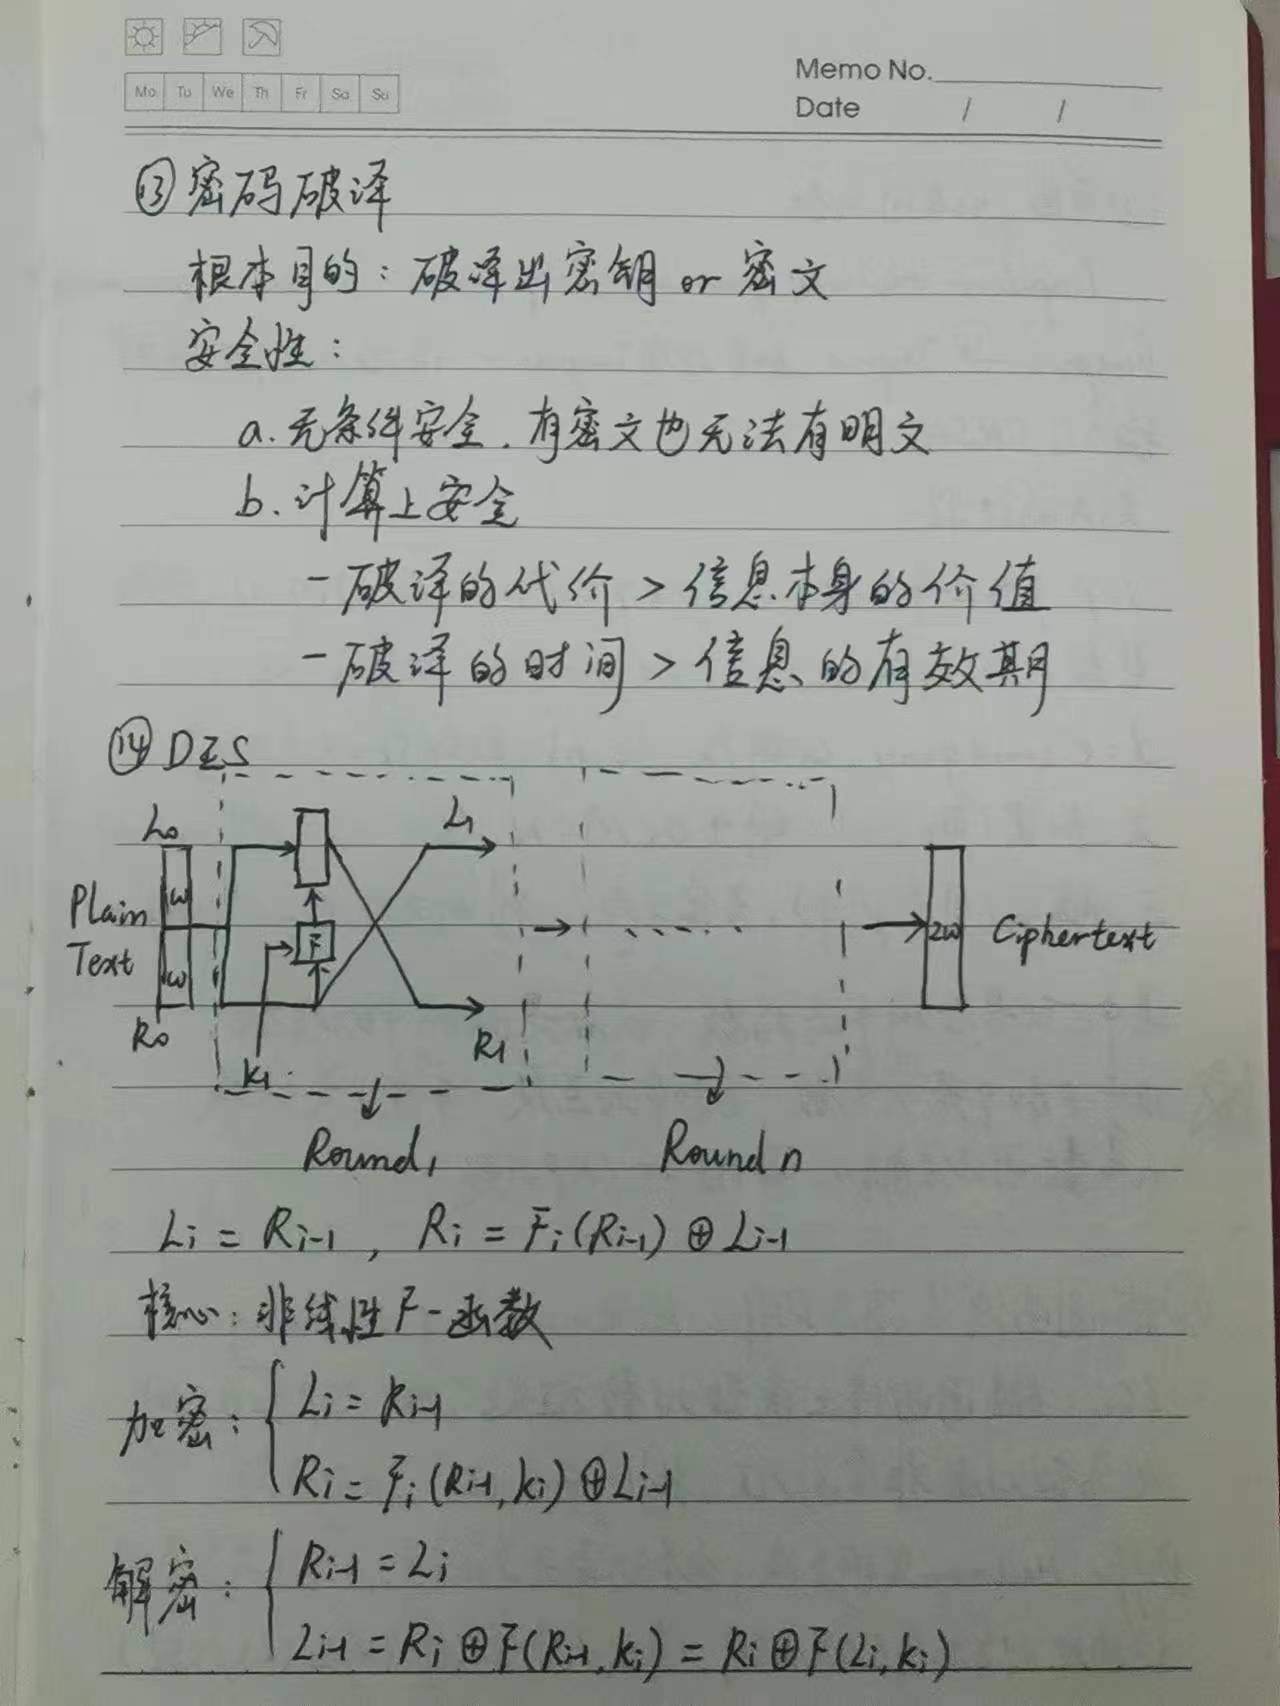 Memo No.
Mo Tu We Th Fr Sa Su
Date / /
⑬密码破译
根本目的：破译出密钥 or 密文
安全性：
a. 无条件安全，有密文也无法有明文
b. 计算上安全
－破译的代价 > 信息本身的价值
－破译的时间 > 信息的有效期
⑭ DES
L₀ L₁
Plain Text
w
w
F
2w
Ciphertext
R₀ K₁ R₁
Round₁ Round n
Li = Ri-1 , Ri = Fi(Ri-1) ⊕ Li-1
核心：非线性F-函数
加密：{ Li = Ri-1
Ri = Fi(Ri-1, ki) ⊕ Li-1
解密：{ Ri-1 = Li
Li-1 = Ri ⊕ F(Ri-1, ki) = Ri ⊕ F(Li, ki)